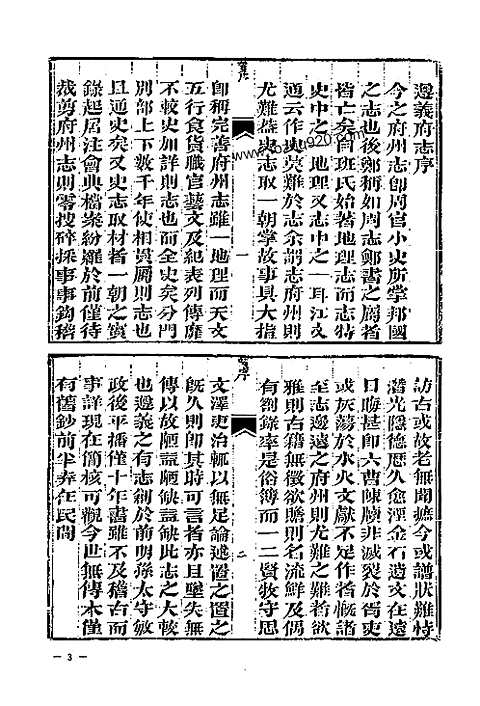 遵義府志序
今之府州志卽周官小史所掌邦國
之志也後鄭稱如周志鄭書之屬者
皆亡矣自班氏始著地理志而志特
史中之一地理又志中之一耳江文
通云作史莫難於志余謂志府州則
尤難葢史志取一朝掌故事具大指
卽稱完善府州志雖一地理而天文
五行食貨職官藝文及紀表列傳靡
不較史加詳則志也而全史矣分門
別部上下數千年使相貫屬則志也
且通史矣又史志取材者一朝之實
錄起居注會典檔案紛羅於前僅待
裁剪府州志則零搜碎採事事鉤稽
序
一
訪古或故老無聞摭今或譜狀難恃
潛光隱德歷久愈湮金石遺文在遠
日晦甚卽六曹陳牘非滅裂於胥吏
或灰蕩於水火文獻不足作者慨諸
至志邊遠之府州則尤難之難若欲
雅則古籍無徵欲贍則名流鮮及偶
有劄錄率是俗簿而一二賢牧守思
文澤吏治輒以無足論述置之置之
旣久則卽其時可言者亦且墜失無
傳以故陋益陋缺益缺此志之大較
也遵義之有志創於前明孫太守敏
政後平播僅十年書雖不及稽古而
事詳現在簡核可觀今世無傳本僅
有舊鈔前半弆在民間
序
二
— 3 —